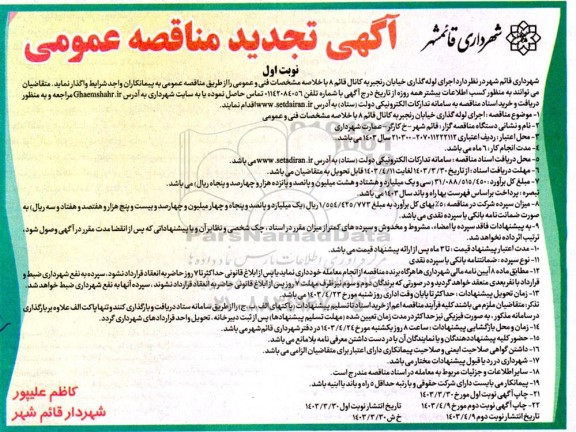 شهرداری قائمشهر
آگهی تجدید مناقصه عمومی
نوبت اول
شهرداری قائم شهر در نظر دارد اجرای لوله گذاری خیابان رنجبر به کانال قائم ۸ با خلاصه مشخصات فنی و عمومی را از طریق مناقصه عمومی به پیمانکاران واجد شرایط واگذار نماید. متقاضیان
می توانند به منظور کسب اطلاعات بیشتر همه روزه از تاریخ درج آگهی با شماره تلفن ۰۱۱۴۲۰۸۴۰۵۶ تماس حاصل نموده یا به سایت شهرداری به آدرس Ghaemshahr.ir مراجعه و به منظور
دریافت و خرید اسناد مناقصه به سامانه تدارکات الکترونیکی دولت (ستاد) به آدرس www.setdiran.ir اقدام نمایند.
۱- موضوع مناقصه : اجرای لوله گذاری خیابان رنجبر به کانال قائم ۸ با خلاصه مشخصات فنی و عمومی
۲- نام و نشانی دستگاه مناقصه گزار : قائم شهر - خ کارگر - عمارت شهرداری
۳- محل اعتبار : ردیف اعتباری
۴- مدت انجام کار : ۶ ماه می باشد.
۵- محل دریافت اسناد مناقصه : سامانه تدارکات الکترونیکی دولت (ستاد) به آدرس www.setadiran.ir می باشد.
۶- مهلت دریافت اسناد : از تاریخ ۱۴۰۳/۳/۳۰ لغایت ۱۴۰۳/۴/۱۱ قابل تحویل به متقاضیان می باشد.
۷- مبلغ کل برآورد : ۳۱/۰۸۸/۵۱۵/۴۵۰ (سی و یک میلیارد و هشتاد و هشت میلیون و پانصد و پانزده هزار و چهارصد و پنجاه ریال) می باشد.
تبصره : پرداخت براساس فهرست بهاء و باند سال ۱۴۰۳ می باشد.
۸- میزان سپرده شرکت در مناقصه : ۵٪ بهای کل برآورد به مبلغ ۱/۵۵۴/۴۲۵/۷۷۳ ریال (یک میلیارد و پانصد و پنجاه و چهار میلیون و چهارصد و بیست و پنج هزار و هفتصد و هفتاد و سه ریال) به
صورت ضمانت نامه بانکی یا سپرده نقدی می باشد.
۹- به پیشنهادات فاقد سپرده یا امضاء، مشروط و مخدوش و سپرده های کمتر از میزان مقرر در اسناد، چک شخصی و نظایر آن و یا پیشنهاداتی که پس از انقضا مدت مقرر در آگهی وصول شود،
ترتیب اثر داده نخواهد شد.
۱۰- مدت اعتبار پیشنهاد قیمت : تا ۳ ماه پس از ارائه پیشنهاد قیمت می باشد.
۱۱- نوع سپرده : ضمانتنامه بانکی یا سپرده نقدی
۱۲- مطابق ماده ۸ آیین نامه مالی شهرداری ها هرگاه برنده مناقصه از انجام معامله خودداری نماید یا پس از ابلاغ قانونی حداکثر تا ۷ روز حاضر به انعقاد قرارداد نشود، سپرده به نفع شهرداری ضبط و
قرارداد با نفر بعدی منعقد خواهد گردید و در صورتی که برندگان دوم و سوم نیز ظرف مهلت ۷ روز پس از ابلاغ قانونی حاضر به انعقاد قرارداد نشوند، سپرده آنها به نفع شهرداری ضبط خواهد شد.
۱۳- زمان تحویل پیشنهادات : حداکثر تا پایان وقت اداری روز شنبه مورخ ۱۴۰۳/۴/۲۳ می باشد.
تذکر: متقاضیان ملزم می باشند کلیه فرآیند مناقصه اعم از خرید اسناد تا تسلیم پیشنهادات (پاکتهای الف، ب، ج) را از طریق سامانه ستاد دریافت و بارگذاری کنند و تنها پاکت الف علاوه بر بارگذاری
در سامانه مذکور، به صورت فیزیکی نیز حداکثر در مدت زمان تعیین شده (مهلت تسلیم پیشنهادها) پس از ثبت دبیرخانه. تحویل واحد قراردادهای شهرداری گردد.
۱۴- زمان و محل بازگشایی پیشنهادات : ساعت ۸ روز یکشنبه مورخ ۱۴۰۳/۴/۲۴ در دفتر شهرداری قائم شهر می باشد.
۱۵- حضور کلیه پیشنهاددهندگان و یا نمایندگان آن با در دست داشتن معرفی نامه بلامانع می باشد.
۱۶- داشتن گواهی صلاحیت ایمنی و صلاحیت پیمانکاری دارای اعتبار برای متقاضیان الزامی می باشد.
۱۷- شهرداری در رد یا قبول پیشنهادات مختار می باشد.
۱۸- سایر اطلاعات و جزئیات مربوط به معامله در اسناد مناقصه مندرج است.
۱۹- پیمانکار می بایست دارای شرکت حقوقی و با رتبه حداقل ۵ راه و باند یا ابنیه باشد.
۲۱- چاپ آگهی نوبت اول مورخ ۱۴۰۳/۳/۳۰
۲۲- چاپ آگهی نوبت دوم مورخ ۱۴۰۳/۴/۹ تاریخ انتشار نوبت اول ۱۴۰۳/۳/۳۰
تاریخ انتشار نوبت دوم ۱۴۰۳/۴/۹ خ ش ۱۴۰۳/۳/۳۰
کاظم علیپور
شهردار قائم شهر
ParsNamadData